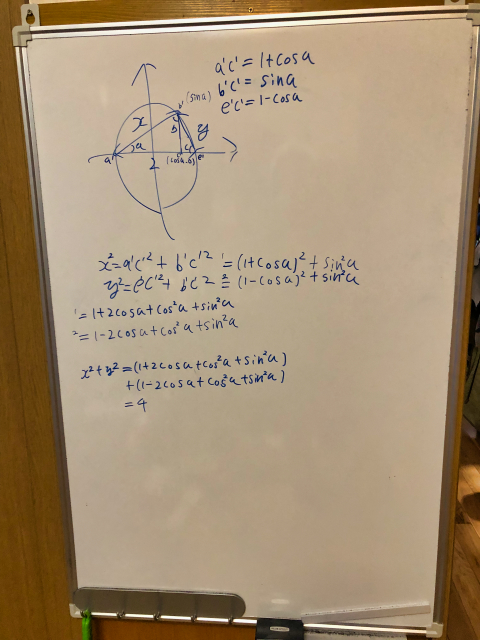 a'c' = 1+cosa
b'c' = sina
e'c' = 1-cosa
b' (sina)
x
y
b
a
a'
2
(cosa.0)
e'
x² = a'c'² + b'c'² ¹= (1+cosa)² + sin²a
y² = e'c'² + b'c'2 ²= (1-cosa)² + sin²a
¹ = 1+2cosa+cos²a+sin²a
² = 1-2cosa+cos²a+sin²a
x²+y² = (1+2cosa+cos²a+sin²a)
+(1-2cosa+cos²a+sin²a)
= 4